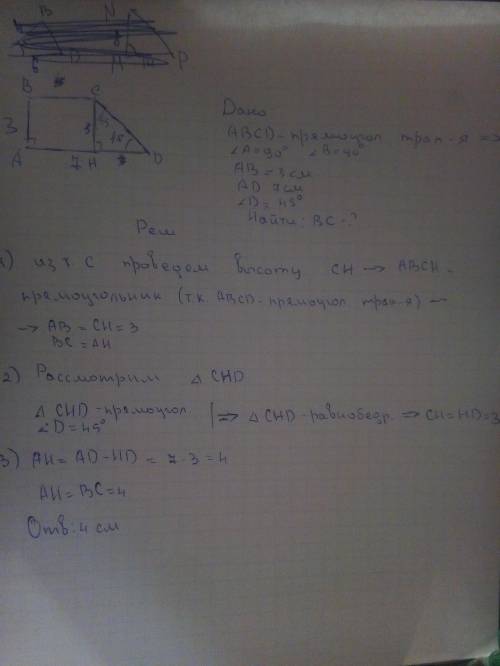 B C
3 3 45
A 7 H D
Дано
ABCD - прямоугол трап-я =>
∠A=90° ∠B=90°
AB = 3 см
AD 7см
∠D = 45°
Найти: BC - ?
Реш
1) из т. C проведем высоту CH → ABCH -
прямоугольник (т.к. ABCD - прямоугол трап-я) —
→ AB = CH = 3
BC = AH
2) Рассмотрим △ CHD
△ CHD - прямоугол.
∠D = 45° => △ CHD - равнобедр. => CH = HD = 3
3) AH = AD - HD = 7 - 3 = 4
AH = BC = 4
Отв: 4 см